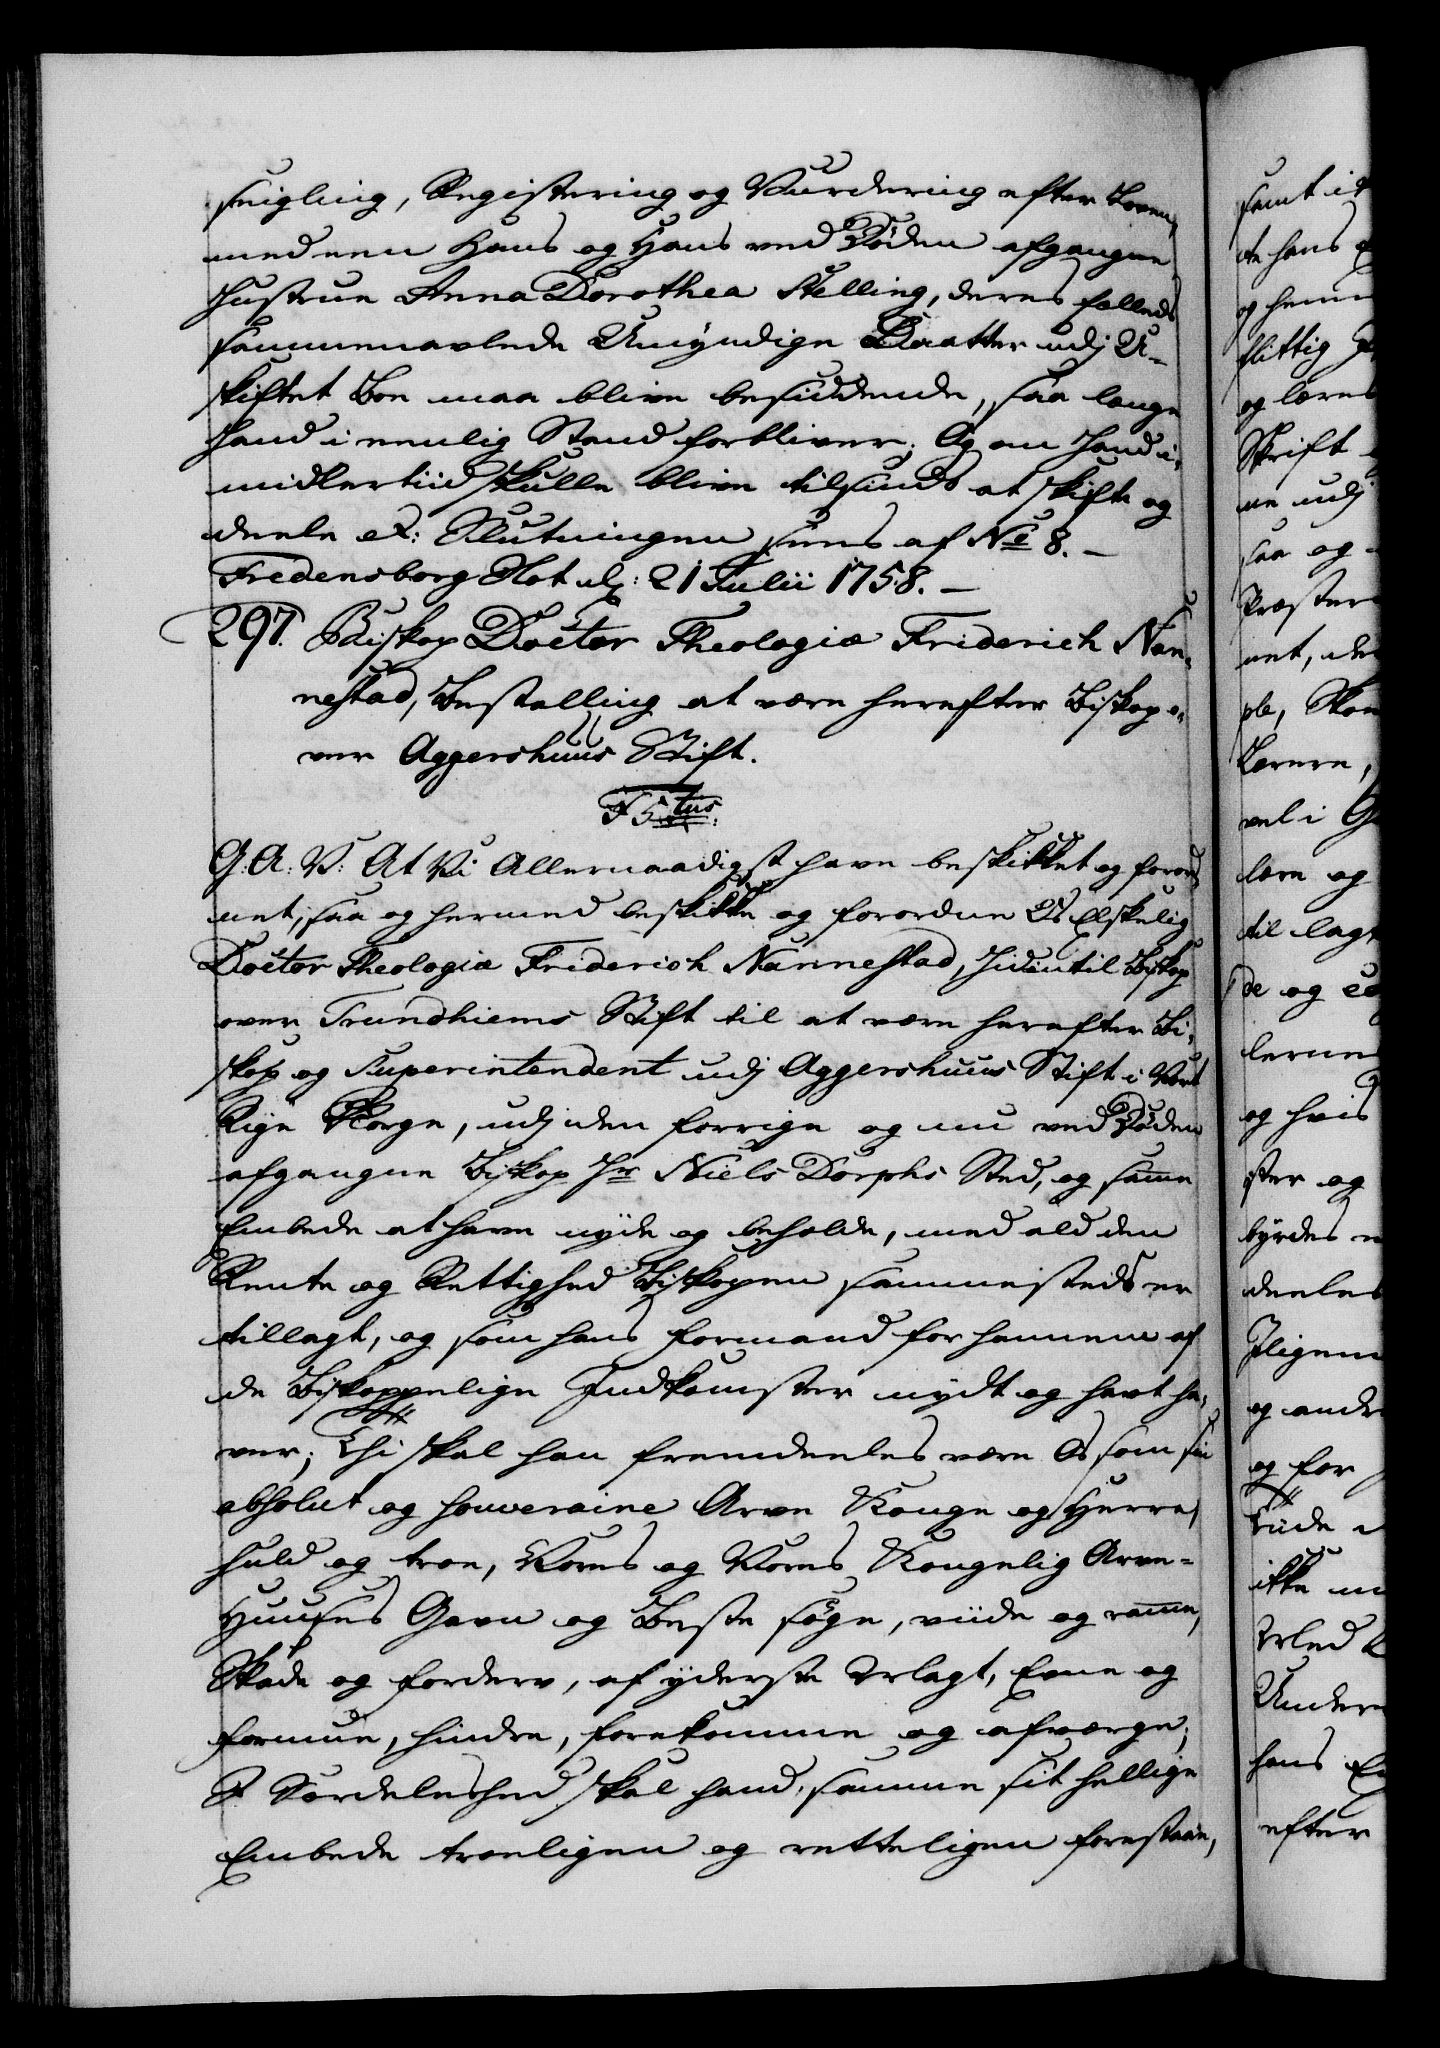 seigling, Registering og Vurdering efter Loven,
med een Hans og Hans ved Døden afgangne
Hustrue Anna Dorothea Stelling, deres fælleds
sammenavlede Umyndige Daatter udj U-
skiftet Boe maa blive besiddende, saa længe
hand i eenlig Stand forbliver; Og om hand i-
midlertiid skulle blive tilsinds at skifte og
deele etc: Slutningen sees af No 8. –
Fredensborg Slot d: 21 Julii 1758. –
297. Biskop Doctor Theologiæ Friderich Nan-
nestad, Bestalling at være herefter Biskop o-
ver Aggershuus Stift.
F 5tus.
G: A: V: At Vi Allernaadigst have beskikket og forord-
net, saa og hermed beskikke og forordne Os Elskelig
Doctor Theologiæ Friderich Nannestad, hidintil Biskop
over Trundhiems Stift til at være herefter Bi-
skop og Superintendent udj Aggershuus Stift i Vort
Rige Norge, udj den forrige og nu ved Døden
afgangne Biskop Hr Niels Dorphs Sted, og samme
Embede at have nyde og beholde, med ald den
Rente og Rettighed Biskopen sammesteds er
tillagt, og som hans Formand for hannem af
de Biskoppelige Indkomster nydt og havt ha-
ver; Thi skal han fremdeles være Os som sin
absolut og souveraine Arve Konge og Herre,
huld og troe, Vores og Vores Kongelig Arve-
Huuses Gavn og Beste søge, viide og ramme,
Skade og forderv, af yderste Velagt, Evne og
formue, hindre, forekomme og afværge;
I Særdeleshed skal hand, samme sit hellige
Embede troeligen og retteligen forestaae,